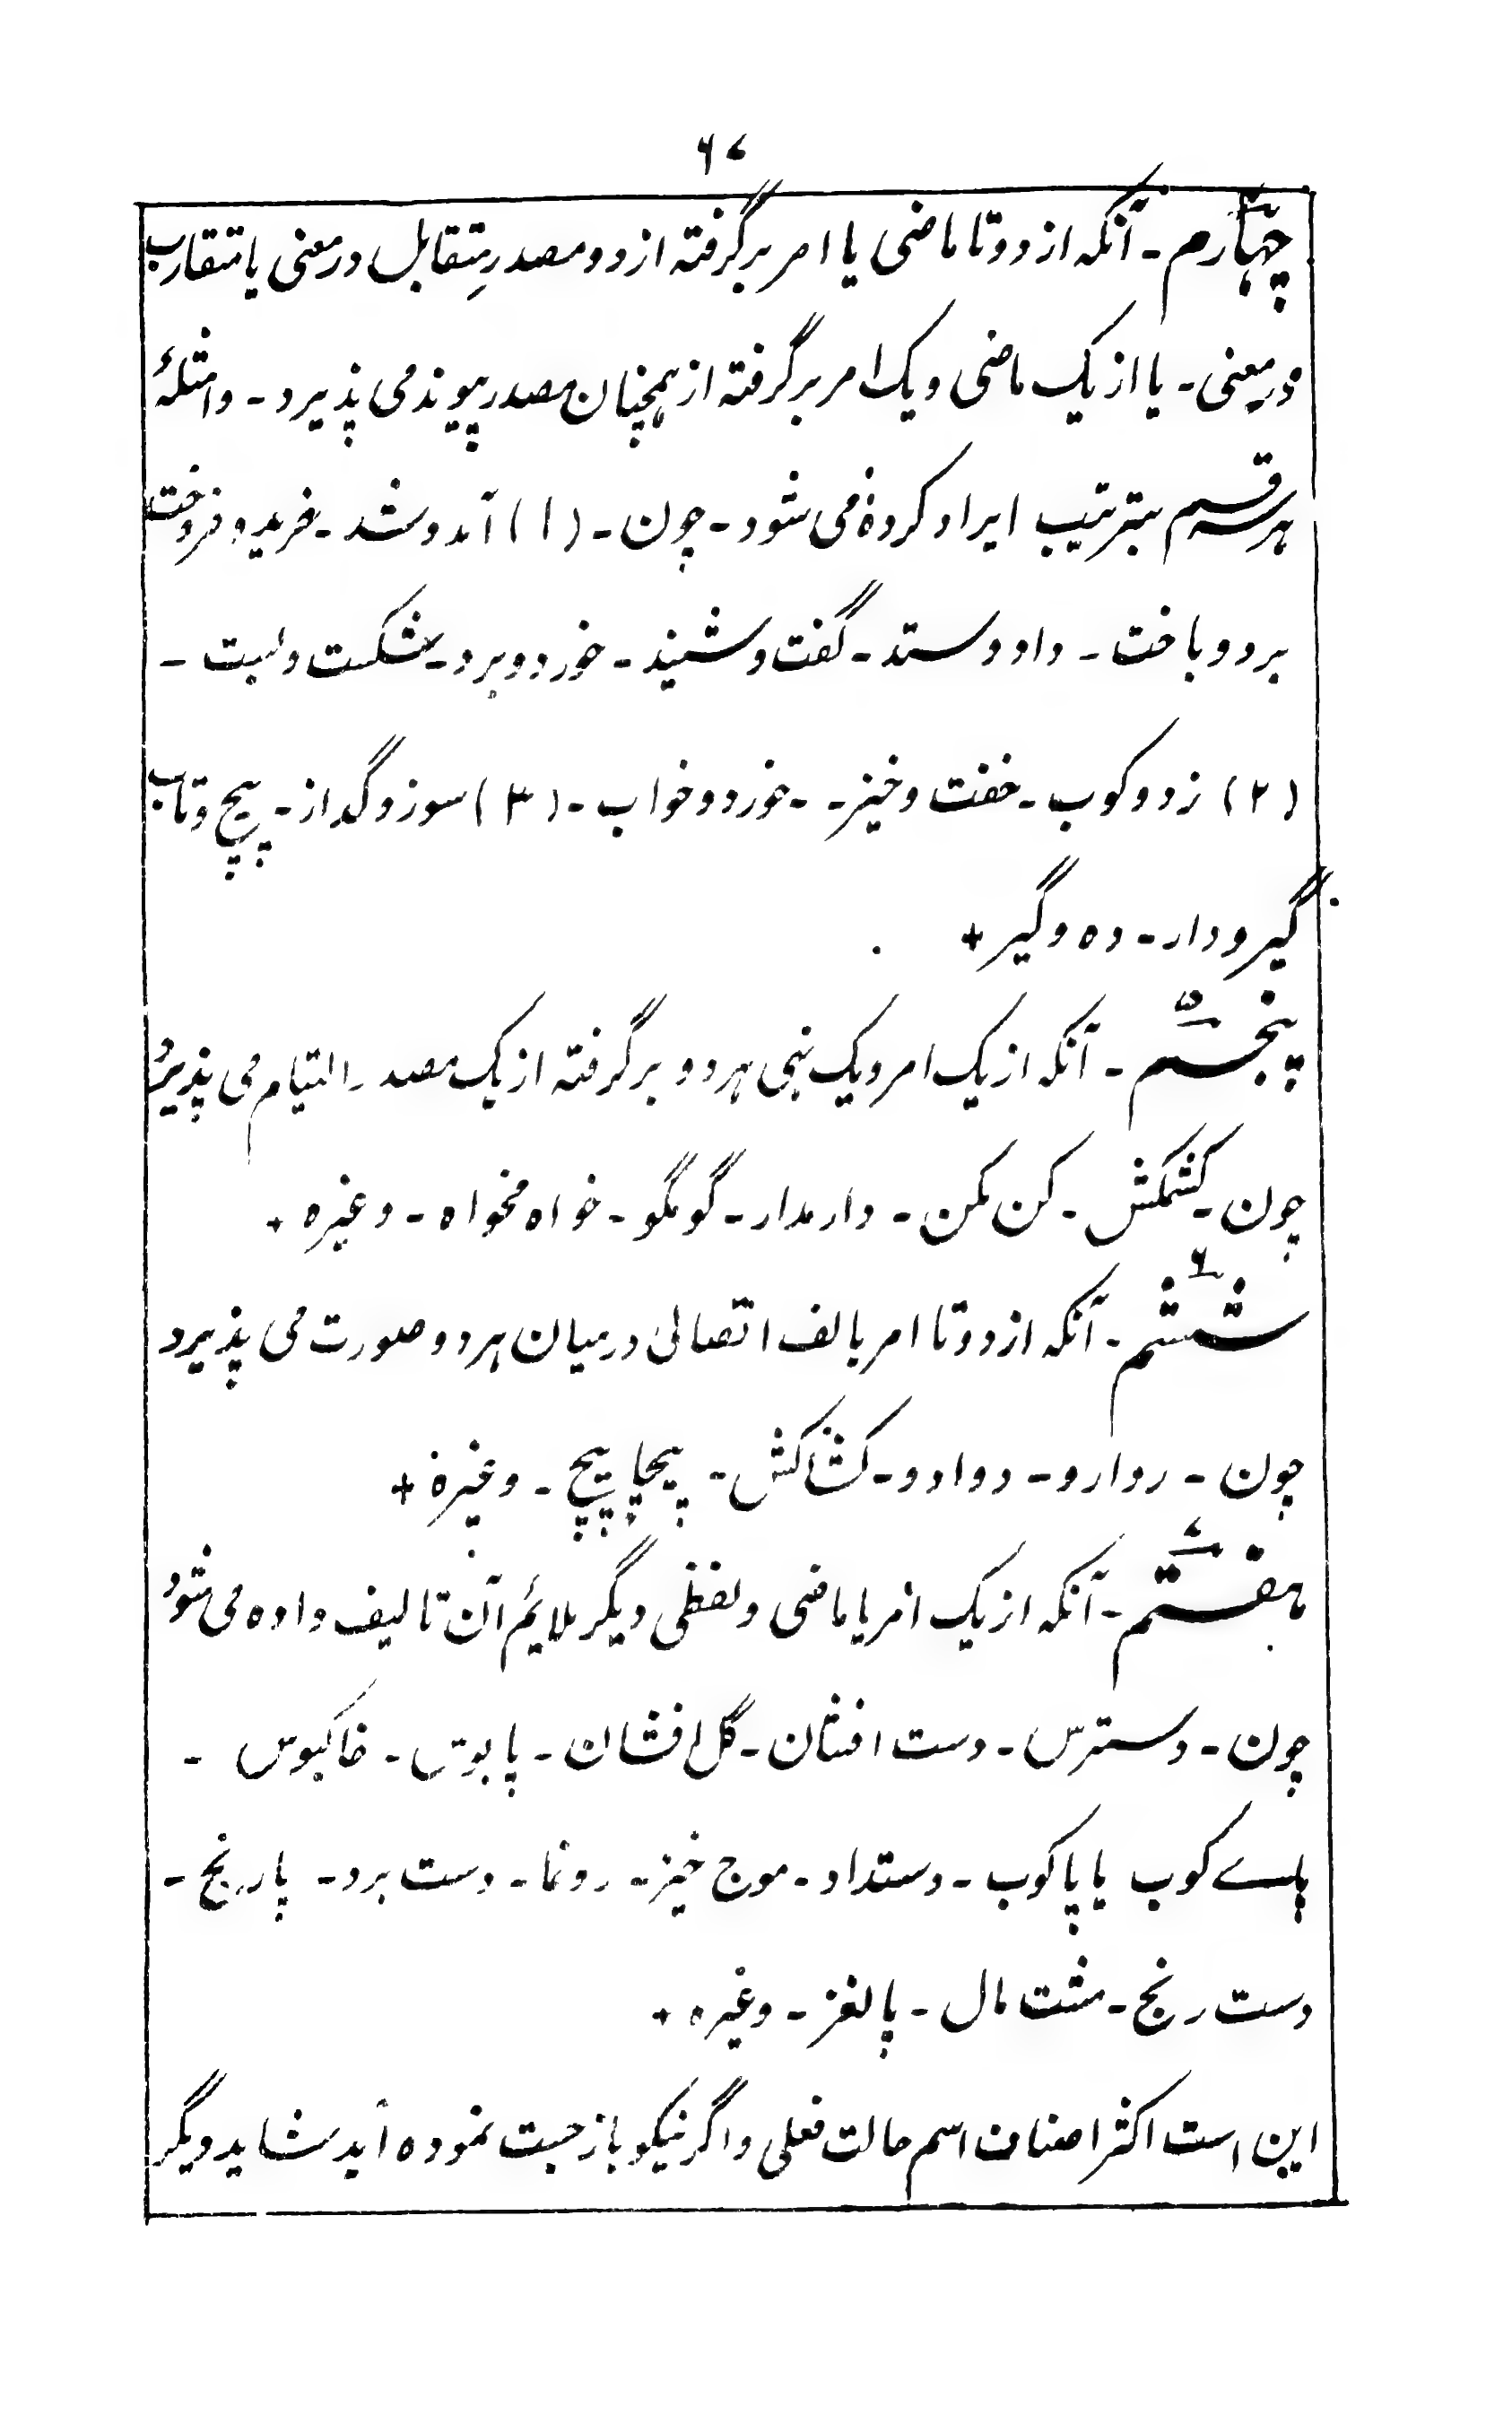 ۶۷
چہارم۔ آنکہ از دو تا ماضی یا امر برگرفتہ از دو مصدرِ متقابل در معنی یا متقارب
در معنی۔ یا از یک ماضی و یک امر برگرفتہ از ہمچنان مصدر پیوند می پذیرد۔ و امثلۂ
ہر سہ قسم بترتیب ایراد کردہ می شود۔ چون۔ (۱) آمد و شد۔ خرید و فروخت
برد و باخت۔ داد و ستد۔ گفت و شنید۔ خورد و برد۔ شکست و بست۔
(۲) زد و کوب۔ خفت و خیز۔ ۔خورد و خواب۔ (۳) سوز و گداز۔ پیچ و تاب
گیر و دار۔ دہ و گیر +
۵
پنجم۔ آنکہ از یک امر و یک نہی ہر دو برگرفتہ از یک مصدر التیام می پذیرد
چون۔ کشمکش۔ کن مکن۔ دار مدار۔ گو مگو۔ خواہ مخواہ۔ وغیرہ +
۶
ششم۔ آنکہ از دو تا امر بالف اتصالی درمیان ہر دو صورت می پذیرد
چون۔ روارو۔ دوادو۔ کشاکش۔ پیچاپیچ۔ وغیرہ +
۷
ہفتم۔ آنکہ از یک امر یا ماضی و لفظی دیگر ملایم آن تالیف دادہ می شود
چون۔ دسترس۔ دست افشان۔ گل افشان۔ پابوس۔ خاکبوس۔
پاے کوب یا پاکوب۔ دستداد۔ موج خیز۔ رونما۔ دست برد۔ پارنج۔
دست رنج۔ مشت مال۔ پالغز۔ وغیرہ +
این است اکثر اصناف اسم حالت فعلی و اگر نیکو بازجست نمودہ آید شاید دیگر